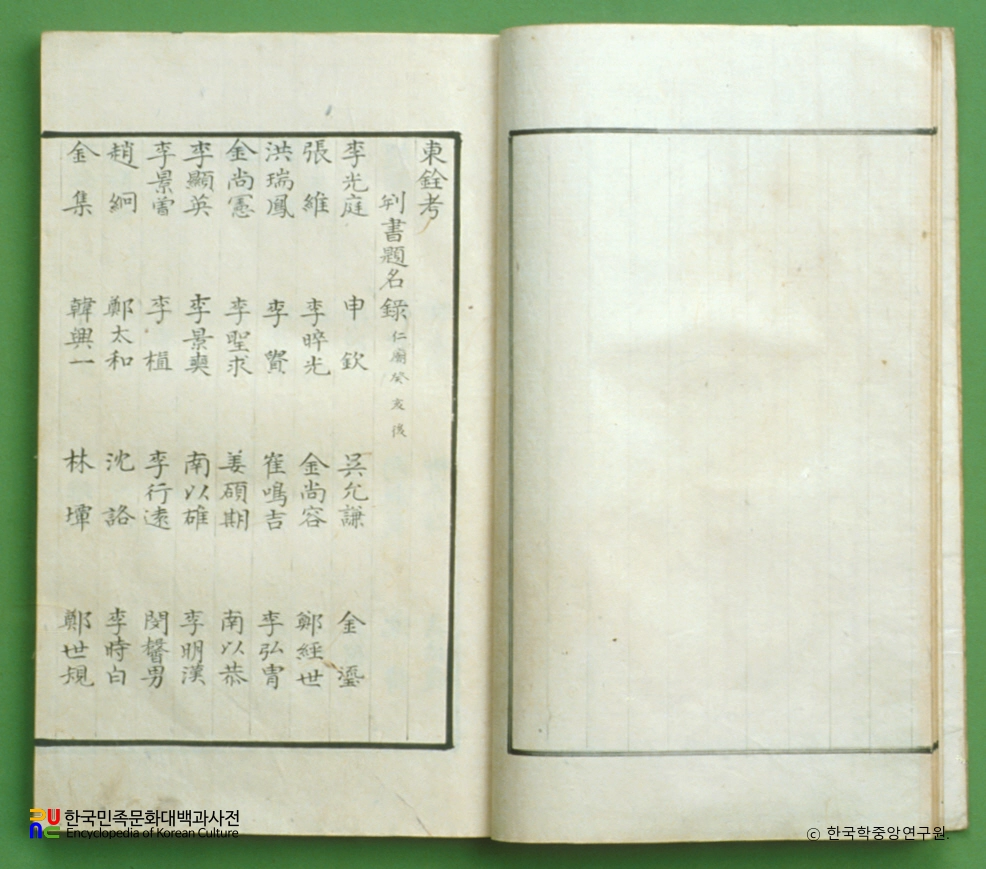 東銓考
判書題名錄 仁廟癸亥後
李光庭 申欽 吳允謙 金瑬
張維 李晬光 金尚容 鄭經世
洪瑞鳳 李貴 崔鳴吉 李弘胄
金尚憲 李聖求 姜碩期 南以恭
李顯英 李景奭 南以雄 李明漢
李景曾 李植 李行遠 閔馨男
趙絅 鄭太和 沈詻 李時白
金集 韓興一 林墰 鄭世規
한국민족문화대백과사전
Encyclopedia of Korean Culture
© 한국학중앙연구원.